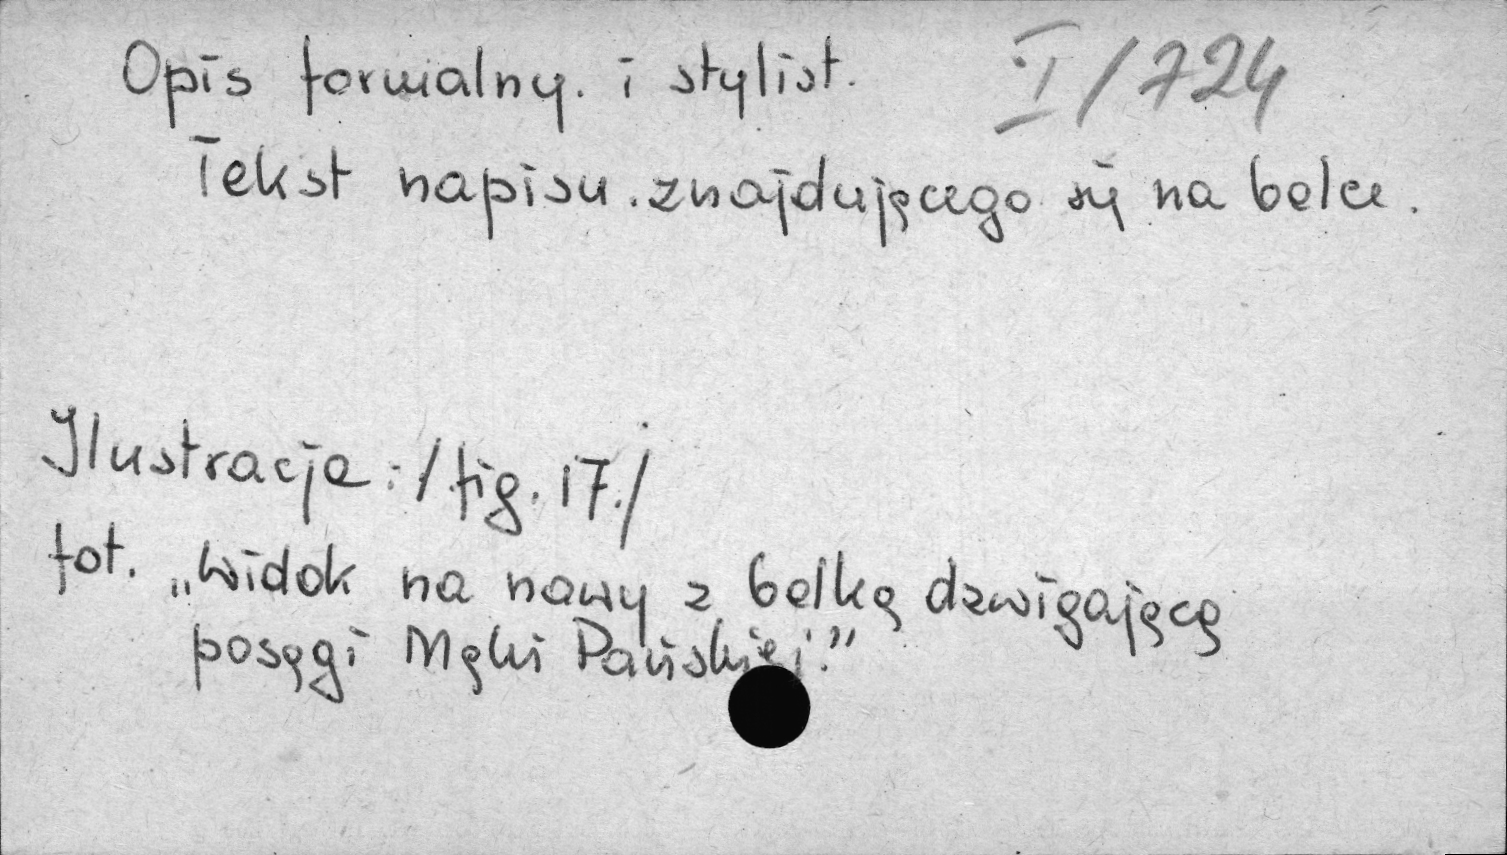 Opis formalny. i stylist. I/724
Tekst napisu znajdującego się na belce.
Ilustracje: /fig. 17./
fot. „Widok na nawy z belką dzwigającą
posągi Męki Pańskiej."